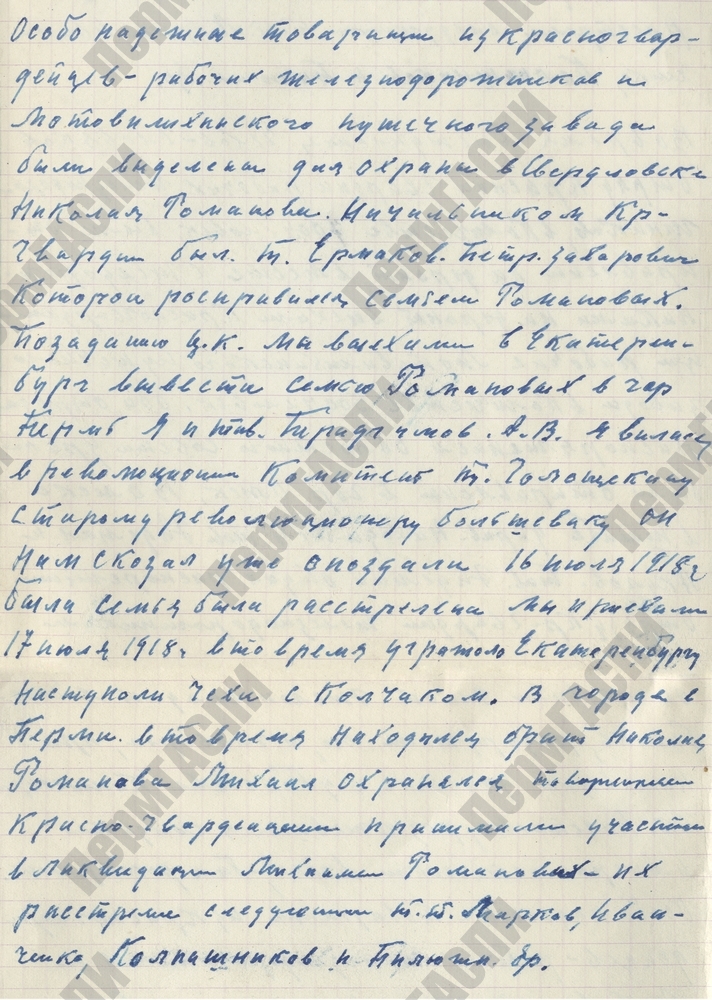 Особо надежные товарищи из красногвар-
дейцев - рабочих железнодорожников и
Мотовилихинского пушечного завода
были выделены для охраны в Свердловске
Николая Романова. Начальником Кр-
Гвардии был. т. Ермаков. Петр. Захарович
который росправился семьей Романовых.
По заданию Ц.К. мы выехали в Екатерин-
бург вывести семью Романовых в гор
Пермь я и тов. А.В. явились
в революционн Комитет т. Голощекину
старому революционеру большевику он
нам сказал уже опоздали 16 июля 1918 г
была семья была расстрелена мы приехали
17 июля 1918 г в то время угрожало Екатеринбургу
наступали Чехи с Колчаком. В городе
Перми. в то время находился брат Николая
Романова Михаил охранялся товарищами
Красно-Гвардейцами принимали участие
в ликвидации Михаила Романовых - их
расстреле следующии т.т. Марков, Иван-
ченко, Колпашников и др.
ПермГАСПИ